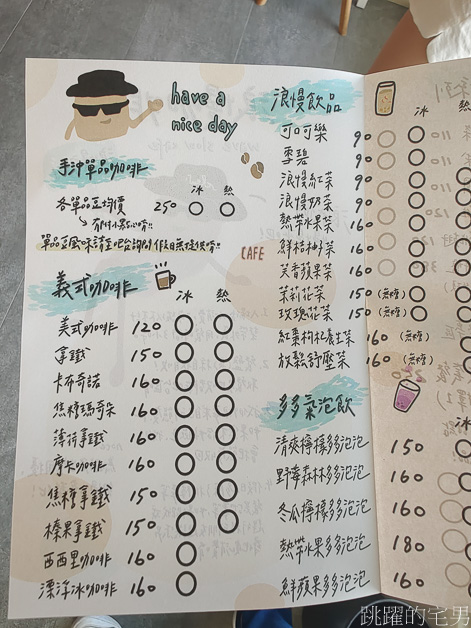 have a
nice day
手沖單品咖啡
冰 熱
各單品豆均價 250
↳ 有附小點心唷!!
單品豆風味請至吧台詢問 假日無提供唷!!
CAFE
義式咖啡
冰 熱
美式咖啡 120
拿鐵 150
卡布奇諾 160
焦糖瑪奇朵 160
薄荷拿鐵 160
摩卡咖啡 160
焦糖拿鐵 150
榛果拿鐵 150
西西里咖啡 160
漂浮冰咖啡 160
浪慢飲品
冰
可口可樂 90
雪碧 90
浪慢紅茶 90
浪慢奶茶 90
熱帶水果茶 160
鮮桔柚子茶 160
芙香蘋果茶 160
茉莉花茶 150 (無糖)
玫瑰花茶 150 (無糖)
紅棗枸杞養生茶 160 (無糖)
放鬆紓壓茶 160 (無糖)
多多氣泡飲
冰
清爽檸檬多多泡泡 150
野莓森林多多泡泡 160
冬瓜檸檬多多泡泡 160
熱帶水果多多泡泡 180
鮮蘋果多多泡泡 160
跳躍的宅男